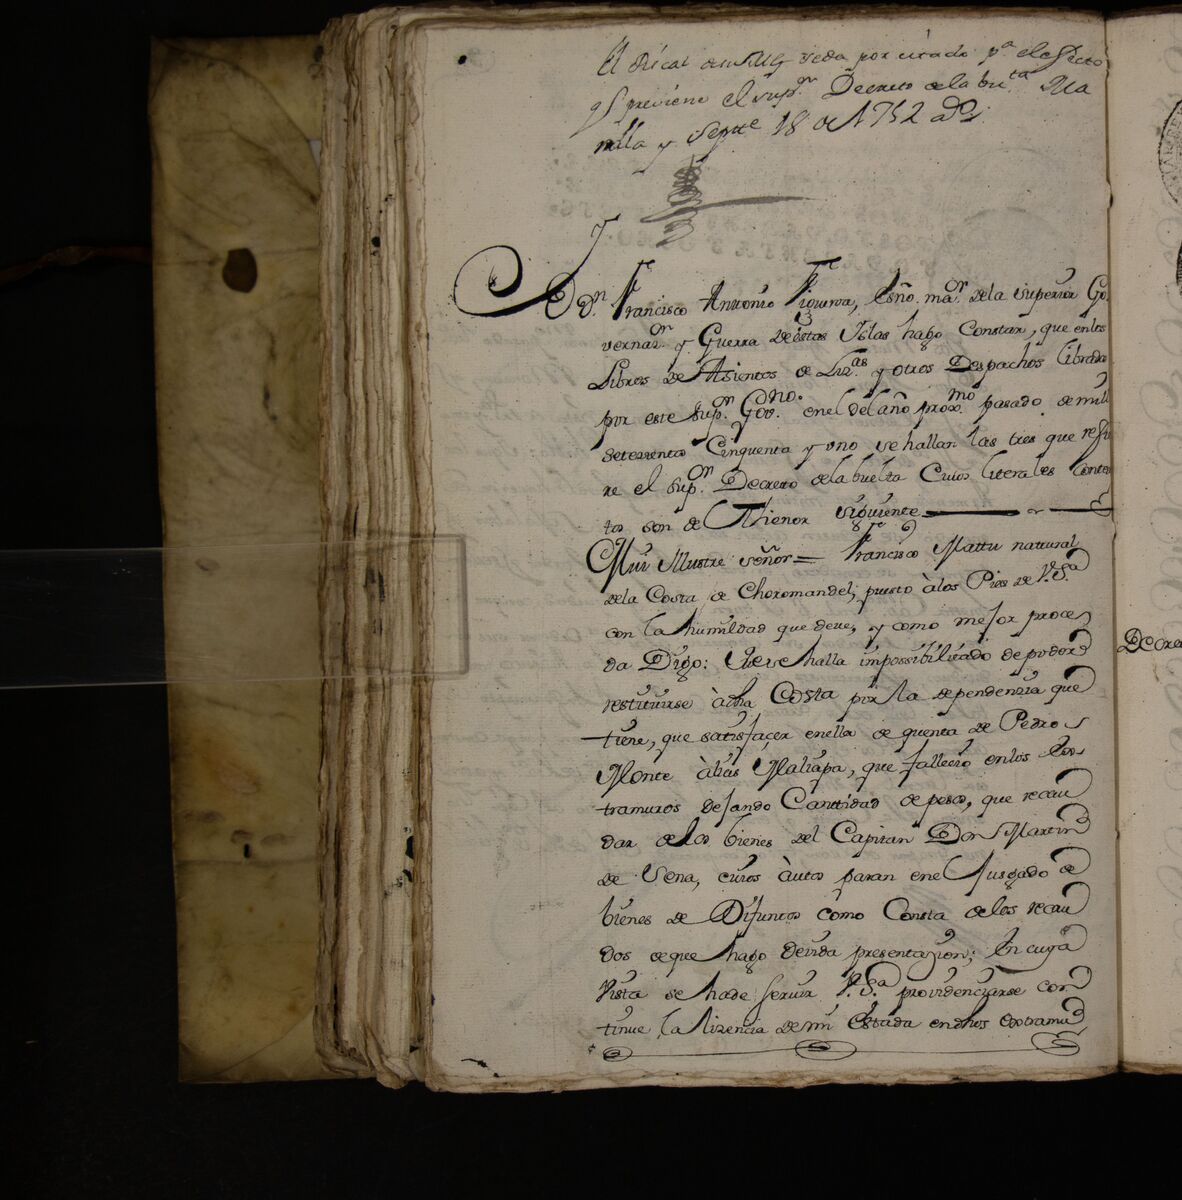 El fiscal de su Mg.d se da por citado p.a el efecto
q.e previene el sup.or Decreto de la bu.ta Ma
nilla y Septt.e 18 de 1752 a.s
D.n Francisco Antonio Figueroa, Esño. ma.or de la Superior Go
vernaz.on y Guerra de estas Yslas hago Constar, que en los
Libros de Asientos de Liz.as y otros Despachos librados
por este Sup.or Gov.no en el del año prox.mo pasado de mill
Setezientos Cinquenta y uno se hallan las tres que refie
re el sup.or Decreto de la buelta Cuios literales Conten
tos son de Thenor siguiente
Mui Illustre Señor = Francisco Mattu natural
de la Costa de Choromandel; puesto à los Pies de V.Sa
con la humildad que deve, y como mejor proce
da Digo: Que se halla impossibilitado de poder
restituirse à dha Costa por la dependenzia que
tiene, que satisfaçer en ella de quenta de Pedro
Monte àlias Maliapa, que fallecio en los Ex
tramuros dejando Canttidad de pesos, que recau
dar de los bienes del Capitan Don Martin
de Sena, cuios àutos paran en el Jusgado de
bienes de Difuntos como Consta de los recau
dos de que hago devida presentazion; En cuya
Vista se ha de servir V.Sa providenciarse con
tinue la lizencia de mi Estada en dhos extramu
Decre